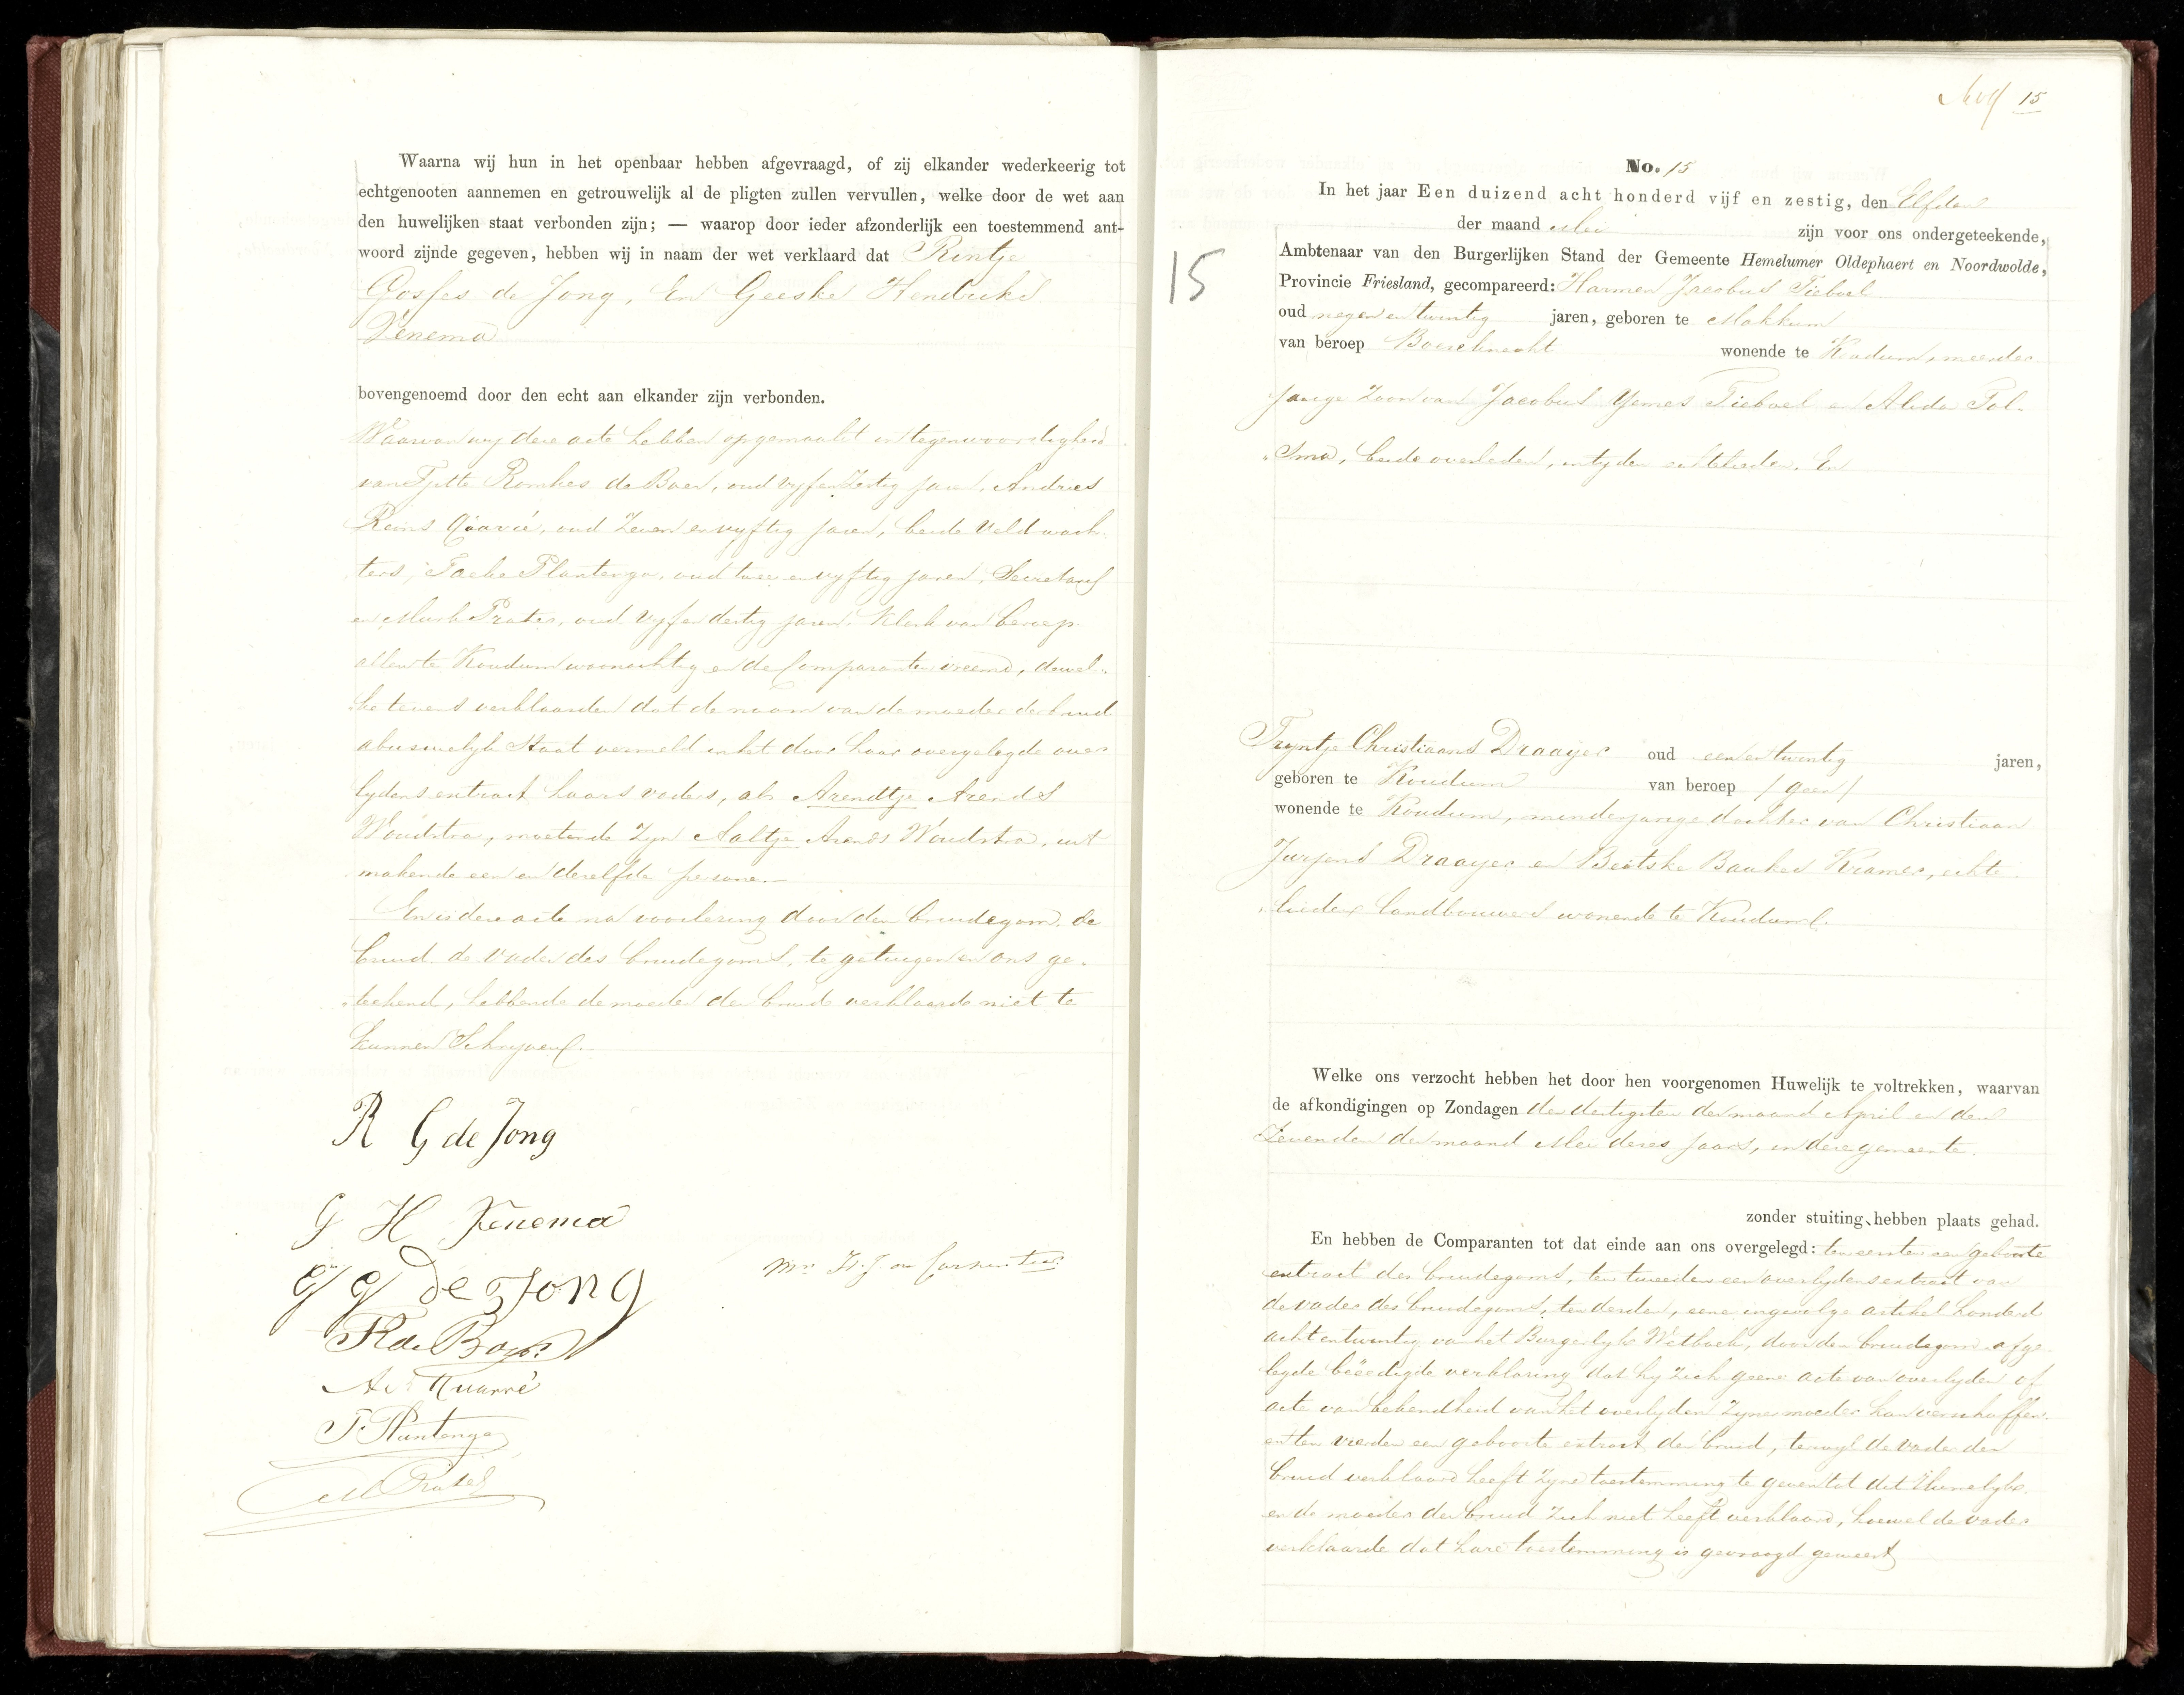 Waarna wij hun in het openbaar hebben afgevraagd, of zij elkander wederkeerig tot
echtgenooten aannemen en getrouwelijk al de pligten zullen vervullen, welke door de wet aan
den huwelijken staat verbonden zijn; — waarop door ieder afzonderlijk een toestemmend ant-
woord zijnde gegeven, hebben wij in naam der wet verklaard dat Rintje
Gosses de Jong, En Geeske Hendriks
Venema
bovengenoemd door den echt aan elkander zijn verbonden.
Waarvan wij deze acte hebben opgemaakt in tegenwoordigheid
van Tjitte Romkes de Boer, oud vyf en zestig jaren, Andries
Reins Quarré, oud Zeven en vyftig jaren, beide Veldwach-
ters, Taeke Plantenga, oud twee en vyftig jaren, Secretaris
en Murk Prater, oud vyf en dertig jaren, Klerk van beroep
allen te Koudum woonachtig en de Comparanten vreemd, dewel-
ke tevens verklaarden dat de naam van de moeder der bruid
abusivelyk Staat vermeld in het door haar overgelegde over
lydens extract haars vaders, als Arendtje Arends
Woudstra, moetende Zyn Aaltje Arends Woudstra, uit
makende een en dezelfde persone.—
En is deze acte na voorlezing door den bruidegom, de
bruid, de Vader des bruidegoms, de getuigen en ons ge-
teekend, hebbende de moeder der bruid verklaard niet te
kunnen Schryven.
R G de Jong
G H Venema
G G de Jong
T R de Boer
A R Quarré
T. Plantenga
M Prater
15
No. 15
In het jaar Een duizend acht honderd vijf en zestig, den Elfden
der maand Mei zijn voor ons ondergeteekende,
15
Ambtenaar van den Burgerlijken Stand der Gemeente Hemelumer Oldephaert en Noordwolde,
Provincie Friesland, gecompareerd: Harmen Jacobus Tieboel
oud negen en twintig jaren, geboren te Makkum
van beroep Boereknecht wonende te Koudum, meerder
jarige Zoon van Jacobus Yemes Tieboel en Alida Tol-
sma, beide overleden, in tyden echtelieden. En
Tryntje Christiaans Draayer oud een en twintig jaren,
geboren te Koudum van beroep / geen /
wonende te Koudum, minderjarige dochter van Christiaan
Jurjens Draayer en Beitske Baukes Kramer, echte
lieden landbouwers wonende te Koudum.
Welke ons verzocht hebben het door hen voorgenomen Huwelijk te voltrekken, waarvan
de afkondigingen op Zondagen den dertigsten der maand April en den
Zevenden der maand Mei dezes jaars, in deze gemeente.
zonder stuiting hebben plaats gehad.
En hebben de Comparanten tot dat einde aan ons overgelegd: ten eersten een geboorte
extract des bruidegoms, ten tweeden een overlydens extract van
de vader des bruidegoms, ten derden, eene ingevolge artikel honderd
acht en twintig van het Burgerlyk Wetboek, door den bruidegom afge
legde beëedigde verklaring dat hy Zich geene acte van overlyden of
acte van bekendheid van het overlyden Zyner moeder kan verschaffen.
en ten vierden een geboorte extract der bruid, terwyl de vader der
bruid verklaard heeft Zyne toestemming te geven tot dit Huwelyk,
en de moeder der bruid Zich niet heeft verklaard, hoewel de vader
verklaarde dat hare toestemming is gevraagd geweest